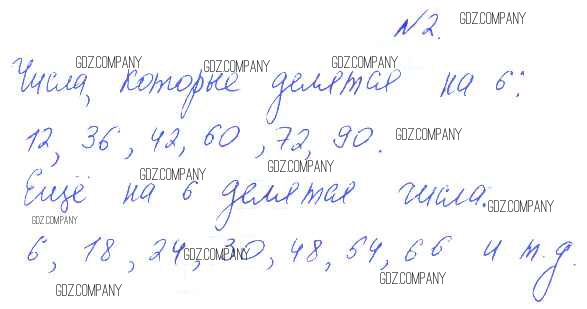 №2. GDZ.COMPANY
GDZ.COMPANY GDZ.COMPANY GDZ.COMPANY
Числа, которые делятся на 6:
12, 36, 42, 60, 72, 90. GDZ.COMPANY
GDZ.COMPANY GDZ.COMPANY
Ещё на 6 делятся числа. GDZ.COMPANY
GDZ.COMPANY
6, 18, 24, 30, 48, 54, 66 и т.д.
GDZ.COMPANY GDZ.COMPANY
GDZ.COMPANY